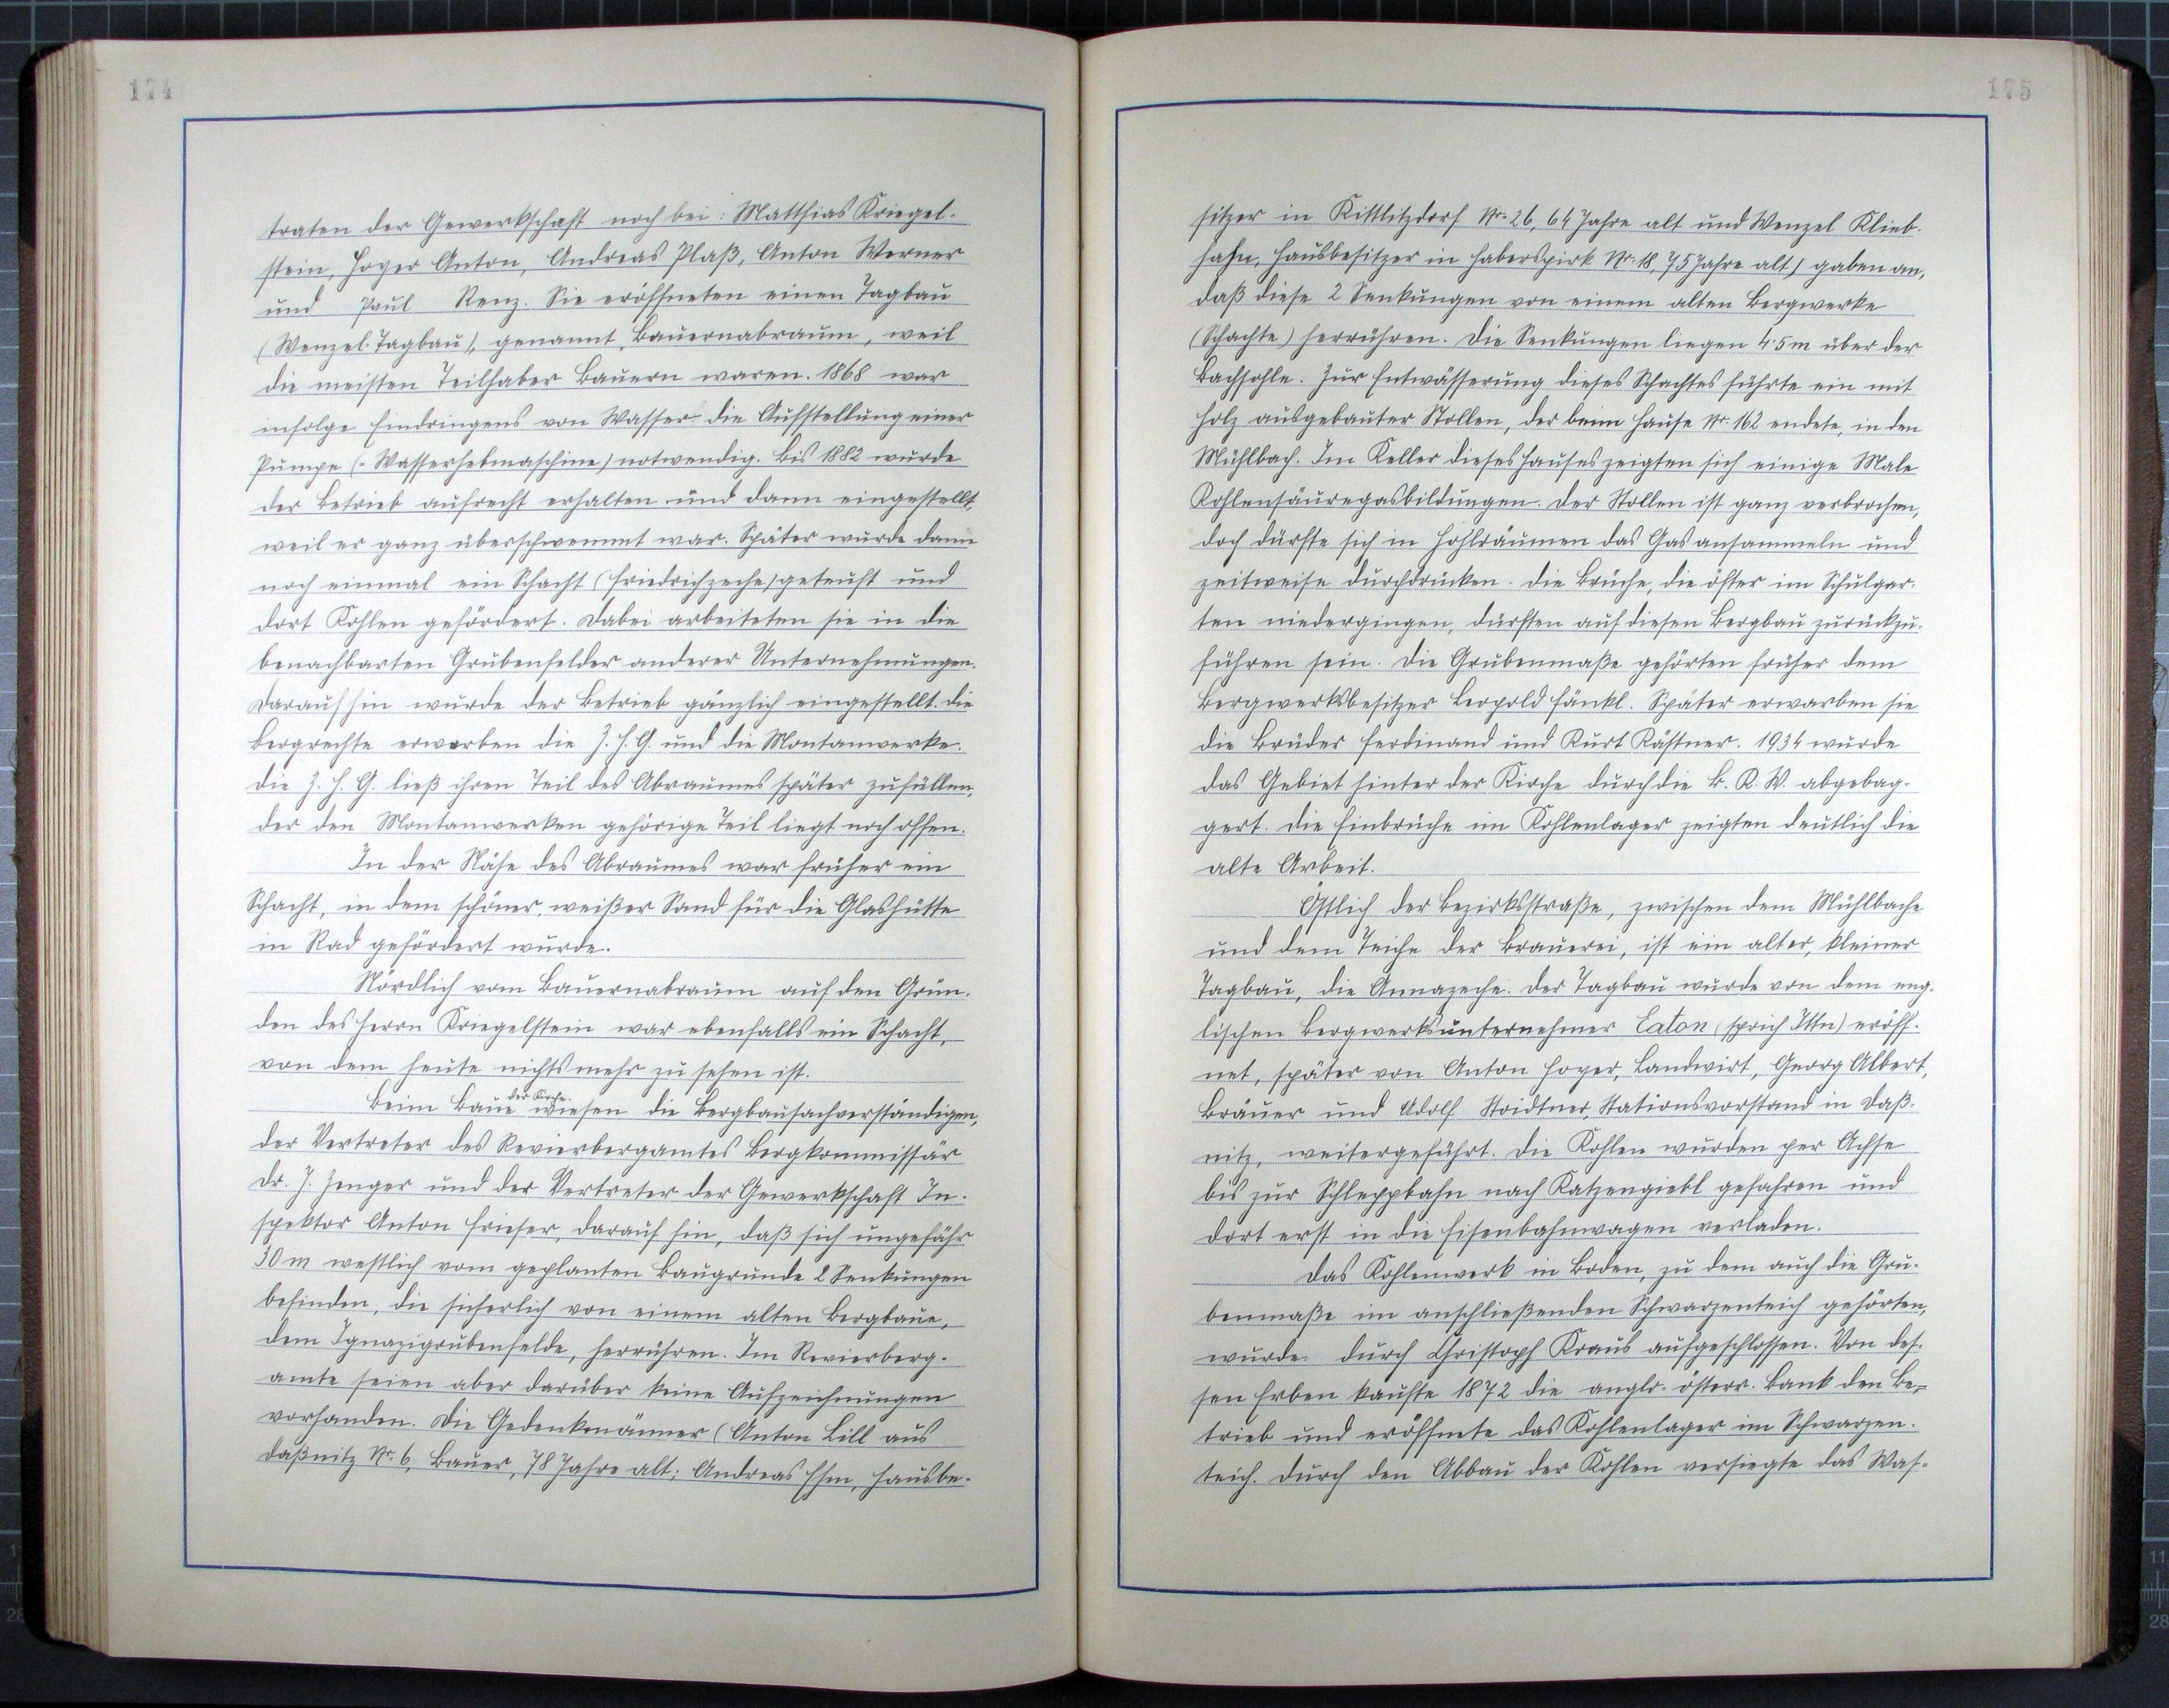 174
traten der Gewerkschaft noch bei: Matthias Kriegel-
stein, Hoyer Anton, Andreas Plaß, Anton Werner
und Paul Renz. Sie eröffneten einen Tagbau
(Wenzel-Tagbau), genannt „Bauernabraum, weil
die meisten Teilhaber Bauern waren. 1868 war
infolge Eindringens von Wasser die Aufstellung einer
Pumpe (= Wasserhebmaschine) notwendig. Bis 1882 wurde
der Betrieb aufrecht erhalten und dann eingestellt,
weil er ganz überschwemmt war. Später wurde dann
noch einmal ein Schacht (Friedrichzeche) geteuft und
dort Kohlen gefördert. Dabei arbeiteten sie in die
benachbarten Grubenfelder anderer Unternehmungen.
Daraufhin wurde der Betrieb gänzlich eingestellt. Die
Bergrechte erwarben die Z. H. G. und die Montanwerke.
Die Z. H. G. ließ ihren Teil des Abraumes später zufüllen,
der den Montanwerken gehörige Teil liegt noch offen.
In der Nähe des Abraumes war früher ein
Schacht, in dem schöner, weißer Sand für die Glashütte
in Rad gefördert wurde.
Nördlich vom Bauernabraum auf den Grün-
den des Herrn Kriegelstein war ebenfalls ein Schacht,
von dem heute nichts mehr zu sehen ist.
Beim Baue der Kirche wiesen die Bergbausachverständigen,
der Vertreter des Revierbergamtes Bergkommissär
Dr. J. Zenger und der Vertreter der Gewerkschaft In-
spektor Anton Frieser, darauf hin, daß sich ungefähr
30 m westlich vom geplanten Baugrunde 2 Senkungen
befinden, die sicherlich von einem alten Bergbaue,
dem Ignazigrubenfelde, herrühren. Im Revierberg-
amte seien aber darüber keine Aufzeichnungen
vorhanden. Die Gedenkmänner (Anton Lill aus
Daßnitz Nr. 6, Bauer, 78 Jahre alt; Andreas Ehm, Hausbe-
175
sitzer in Kittlitzdorf Nr. 26, 64 Jahre alt und Wenzel Klieb-
hahn, Hausbesitzer in Haberspirk Nr. 18, 75 Jahre alt) gaben an,
daß diese 2 Senkungen von einem alten Bergwerke
(Schachte) herrühren. Die Senkungen liegen 4·5 m über der
Bachsohle. Zur Entwässerung dieses Schachtes führte ein mit
Holz ausgebauter Stollen, der beim Hause Nr. 162 endete, in den
Mühlbach. Im Keller dieses Hauses zeigten sich einige Male
Kohlensäuregasbildungen. Der Stollen ist ganz verbrochen,
doch dürfte sich in Hohlräumen das Gas ansammeln und
zeitweise durchdrücken. Die Brüche, die öfter im Schulgar-
ten niedergingen, dürften auf diesen Bergbau zurückzu-
führen sein. Die Grubenmaße gehörten früher dem
Bergwerksbesitzer Leopold Hänkl. Später erwarben sie
die Brüder Ferdinand und Kurt Kästner. 1934 wurde
das Gebiet hinter der Kirche durch die B. K. W. abgebag-
gert. Die Einbrüche im Kohlenlager zeigten deutlich die
alte Arbeit.
Östlich der Bezirksstraße, zwischen dem Mühlbache
und dem Teiche der Brauerei, ist ein alter, kleiner
Tagbau, die Annazeche. Der Tagbau wurde von dem eng-
lischen Bergwerksunternehmer Eaton (sprich Ittn) eröff-
net, später von Anton Hoyer, Landwirt, Georg Albert,
Bräuer und Adolf Stoidtner, Stationsvorstand in Daß-
nitz, weitergeführt. Die Kohlen wurden per Achse
bis zur Schleppbahn nach Katzengiebl gefahren und
dort erst in die Eisenbahnwagen verladen.
Das Kohlenwerk in Boden, zu dem auch die Gru-
benmaße im anschließenden Schwarzenteich gehörten,
wurde durch Christoph Kraus aufgeschlossen. Von des-
sen Erben kaufte 1872 die anglo-österr. Bank den Be-
trieb und eröffnete das Kohlenlager im Schwarzen-
teich. Durch den Abbau der Kohlen versiegte das Was-